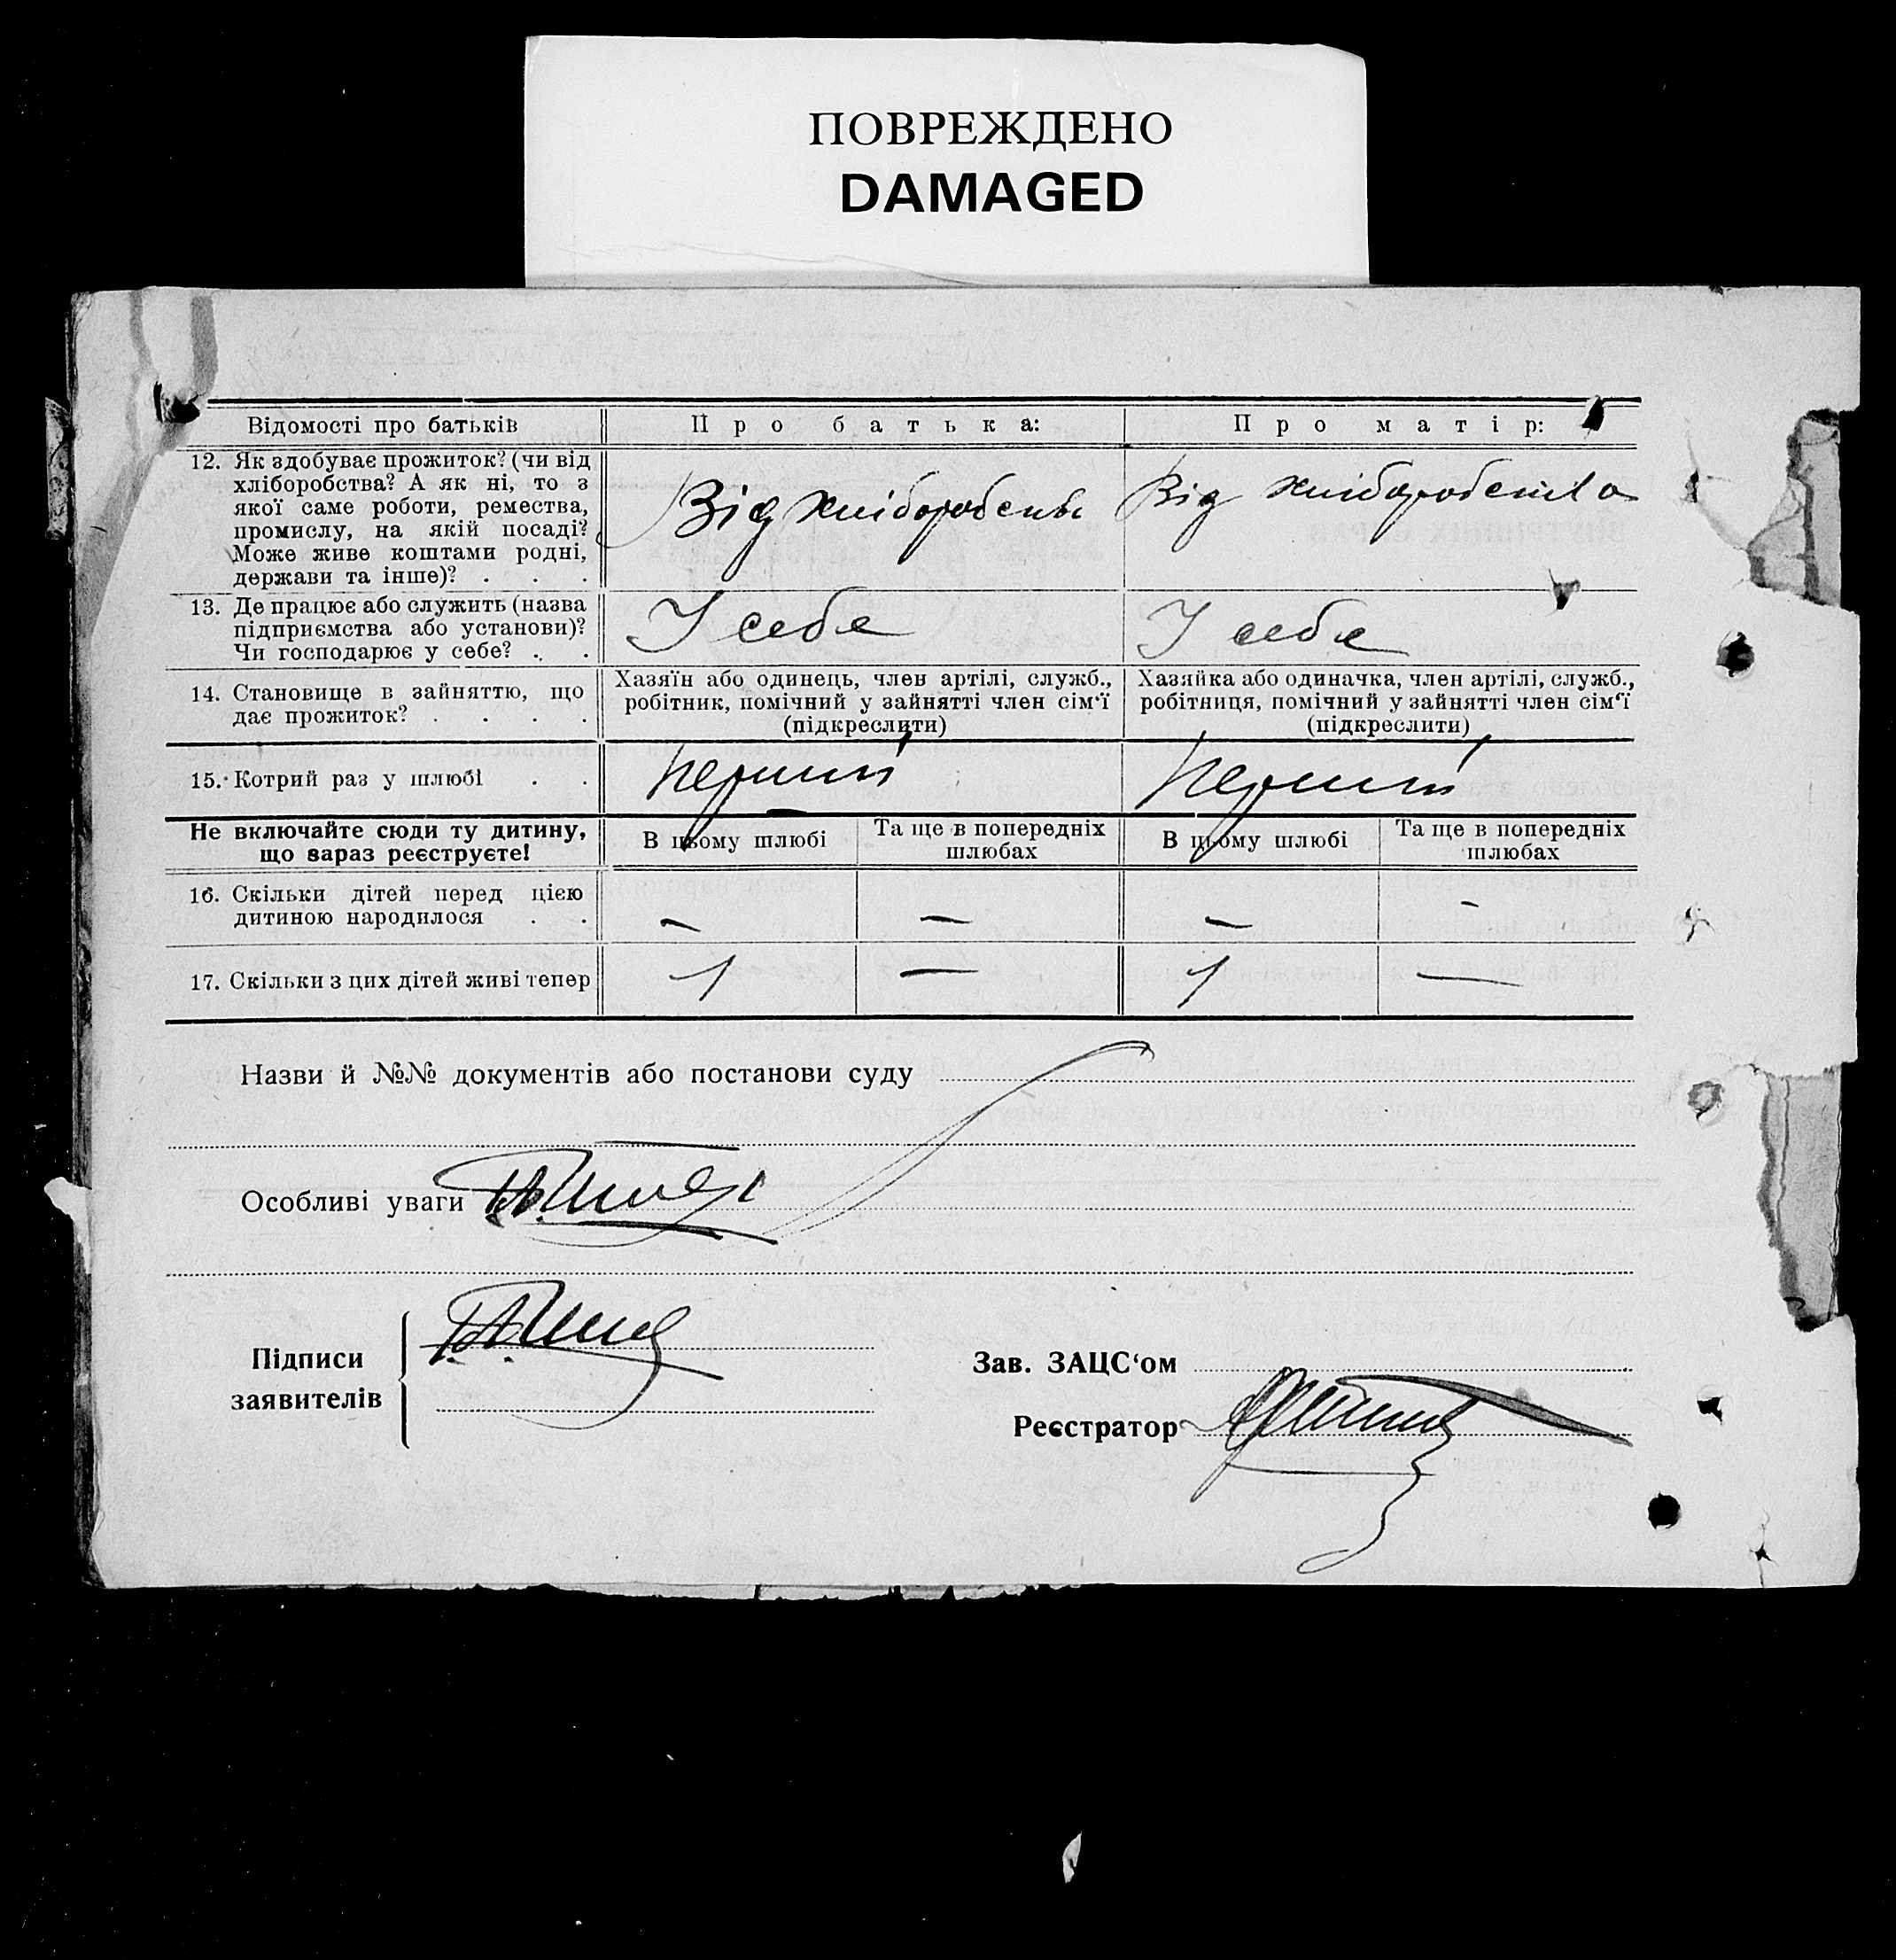 ПОВРЕЖДЕНО
DAMAGED
Відомості про батьків
Про батька:
Про матір:
12. Як здобуває прожиток? (чи від
хліборобства? А як ні, то з
якої саме роботи, ремества,
промислу, на якій посаді?
Може живе коштами родні,
держави та інше)? . . .
Від хліборобства
Від хліборобства
13. Де працює або служить (назва
підприємства або установи)?
Чи господарює у себе? . .
У себе
У себе
14. Становище в зайняттю, що
дає прожиток? . . . .
Хазяїн або одинець, член артілі, служб.,
робітник, помічний у зайнятті член сім‘ї
(підкреслити)
Хазяйка або одиначка, член артілі, служб.,
робітниця, помічний у зайнятті член сім‘ї
(підкреслити)
15. Котрий раз у шлюбі . .
Перший
Перший
Не включайте сюди ту дитину,
що зараз реєструєте!
В цьому шлюбі
Та ще в попередніх
шлюбах
В цьому шлюбі
Та ще в попередніх
шлюбах
16. Скільки дітей перед цією
дитиною народилося . .
— — — -
17. Скільки з цих дітей живі тепер
1 — 1 —
Назви й №№ документів або постанови суду
Особливі уваги
Підписи
заявителів
Зав. ЗАЦС‘ом
Реєстратор